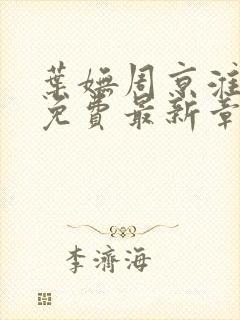 葉嫵周京淮
免費最新章
李濟海